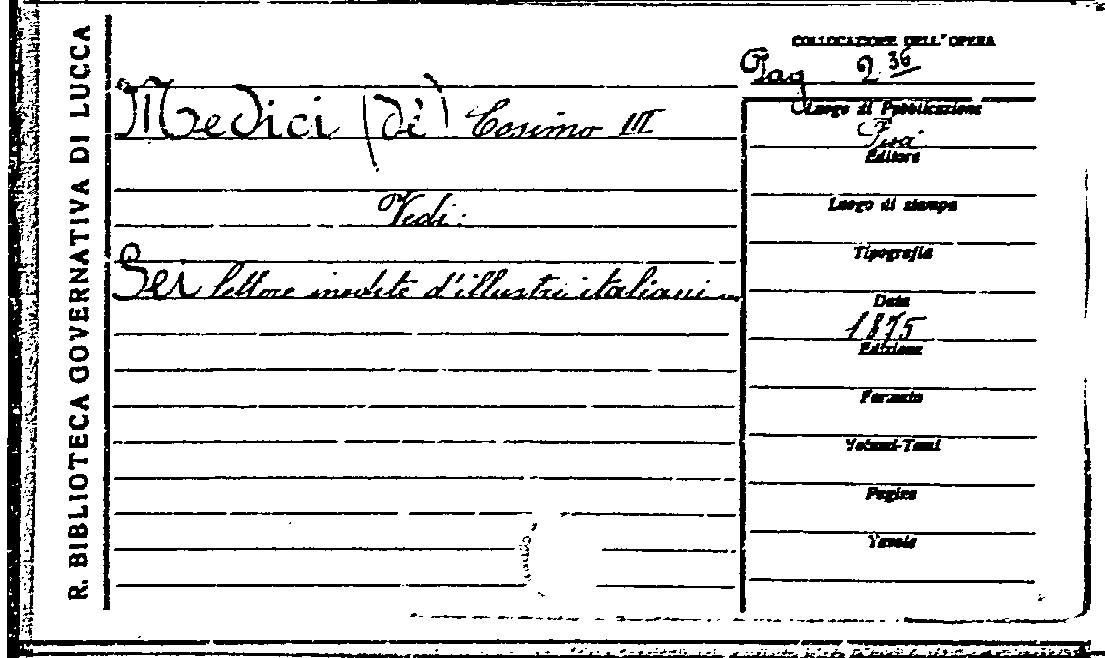 R. BIBLIOTECA GOVERNATIVA DI LUCCA
COLLOCAZIONE DELL'OPERA
2 36
Medici (de') Cosimo III
Luogo di Pubblicazione
Editore
Vedi:
Luogo di stampa
Tipografia
Sei lettere inedite d'illustri italiani
Data
1875
Edizione
Formato
Volumi-Tomi
Pagine
Tavole